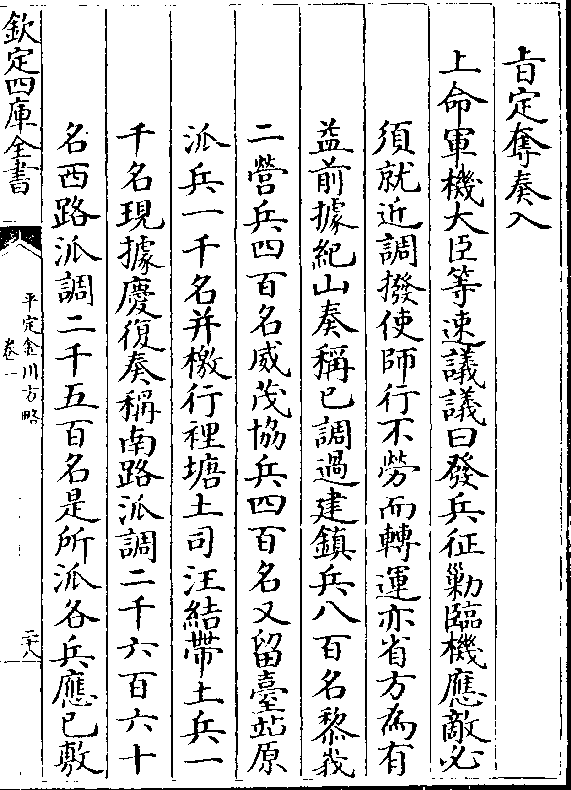 上㫖定奪奏入
上命軍機大臣等速議議曰發兵征勦臨機應敵必
須就近調撥使師行不勞而轉運亦省方為有
益前據紀山奏稱已調過建鎮兵八百名黎莪
二營兵四百名威茂協兵四百名又留臺站原
派兵一千名并檄行裡塘土司汪結帶土兵一
千名現據慶復奏稱南路派調二千六百六十
名西路派調二千五百名是所派各兵應已敷
欽定四庫全書
平定金川方略
卷一
二十八